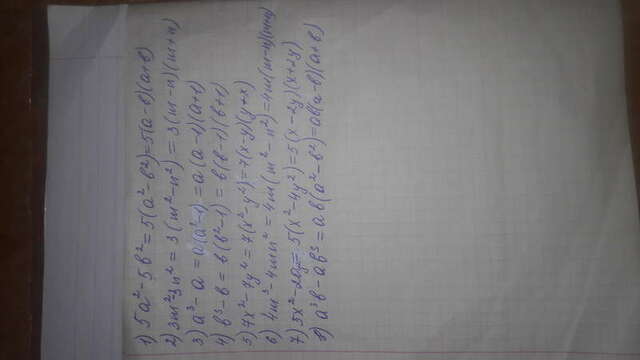 1) 5a² - 5b² = 5(a² - b²) = 5(a - b)(a + b)
2) 3m² - 3n² = 3(m² - n²) = 3(m - n)(m + n)
3) a³ - a = a(a² - 1) = a(a - 1)(a + 1)
4) b³ - b = b(b² - 1) = b(b - 1)(b + 1)
5) 7x² - 7y² = 7(x² - y²) = 7(x - y)(y + x)
6) 4m³ - 4mn² = 4m(m² - n²) = 4m(m - n)(m + n)
7) 5x² - 20y² = 5(x² - 4y²) = 5(x - 2y)(x + 2y)
8) a³b - ab³ = ab(a² - b²) = ab(a - b)(a + b)